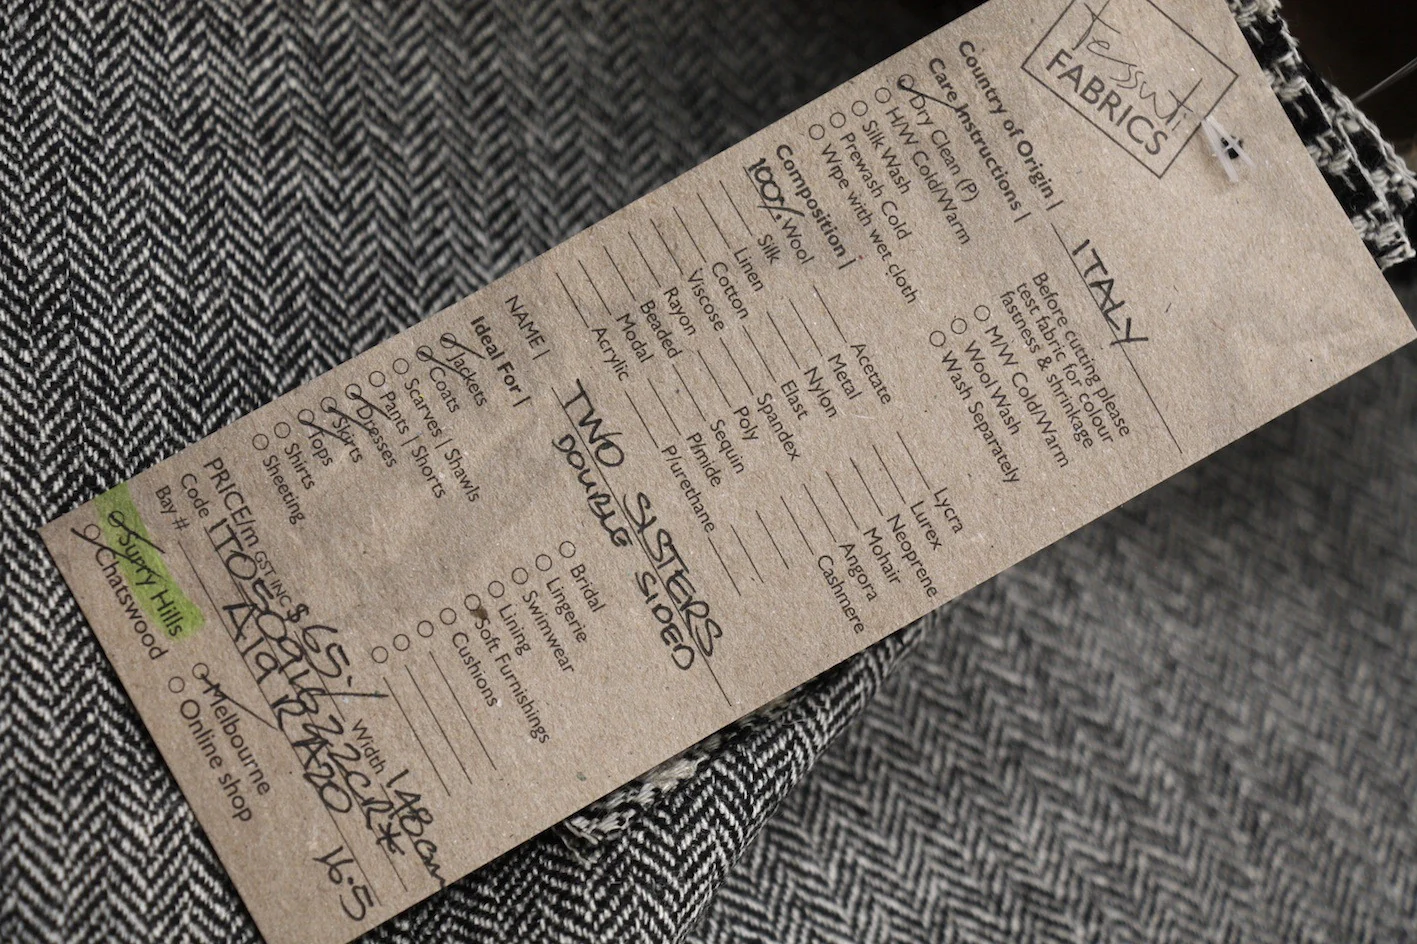 tessuti
FABRICS
Country of Origin | ITALY
Care Instructions |
Before cutting please
test fabric for colour
fastness & shrinkage
Dry Clean (P)
H/W Cold/Warm
Silk Wash
Prewash Cold
Wipe with wet cloth
M/W Cold/Warm
Wool Wash
Wash Separately
Composition |
100% Wool
Silk
Linen
Cotton
Viscose
Rayon
Beaded
Modal
Acrylic
Acetate
Metal
Nylon
Elast
Spandex
Poly
Sequin
P/mide
P/urethane
Lycra
Lurex
Neoprene
Mohair
Angora
Cashmere
NAME | TWO SISTERS
DOUBLE SIDED
Ideal For |
Jackets
Coats
Scarves | Shawls
Pants | Shorts
Dresses
Skirts
Tops
Shirts
Sheeting
Bridal
Lingerie
Swimwear
Lining
Soft Furnishings
Cushions
PRICE/m GST INC $65./ Width 148cm
Code
Bay # 16.5
Surry Hills
Chatswood
Melbourne
Online shop